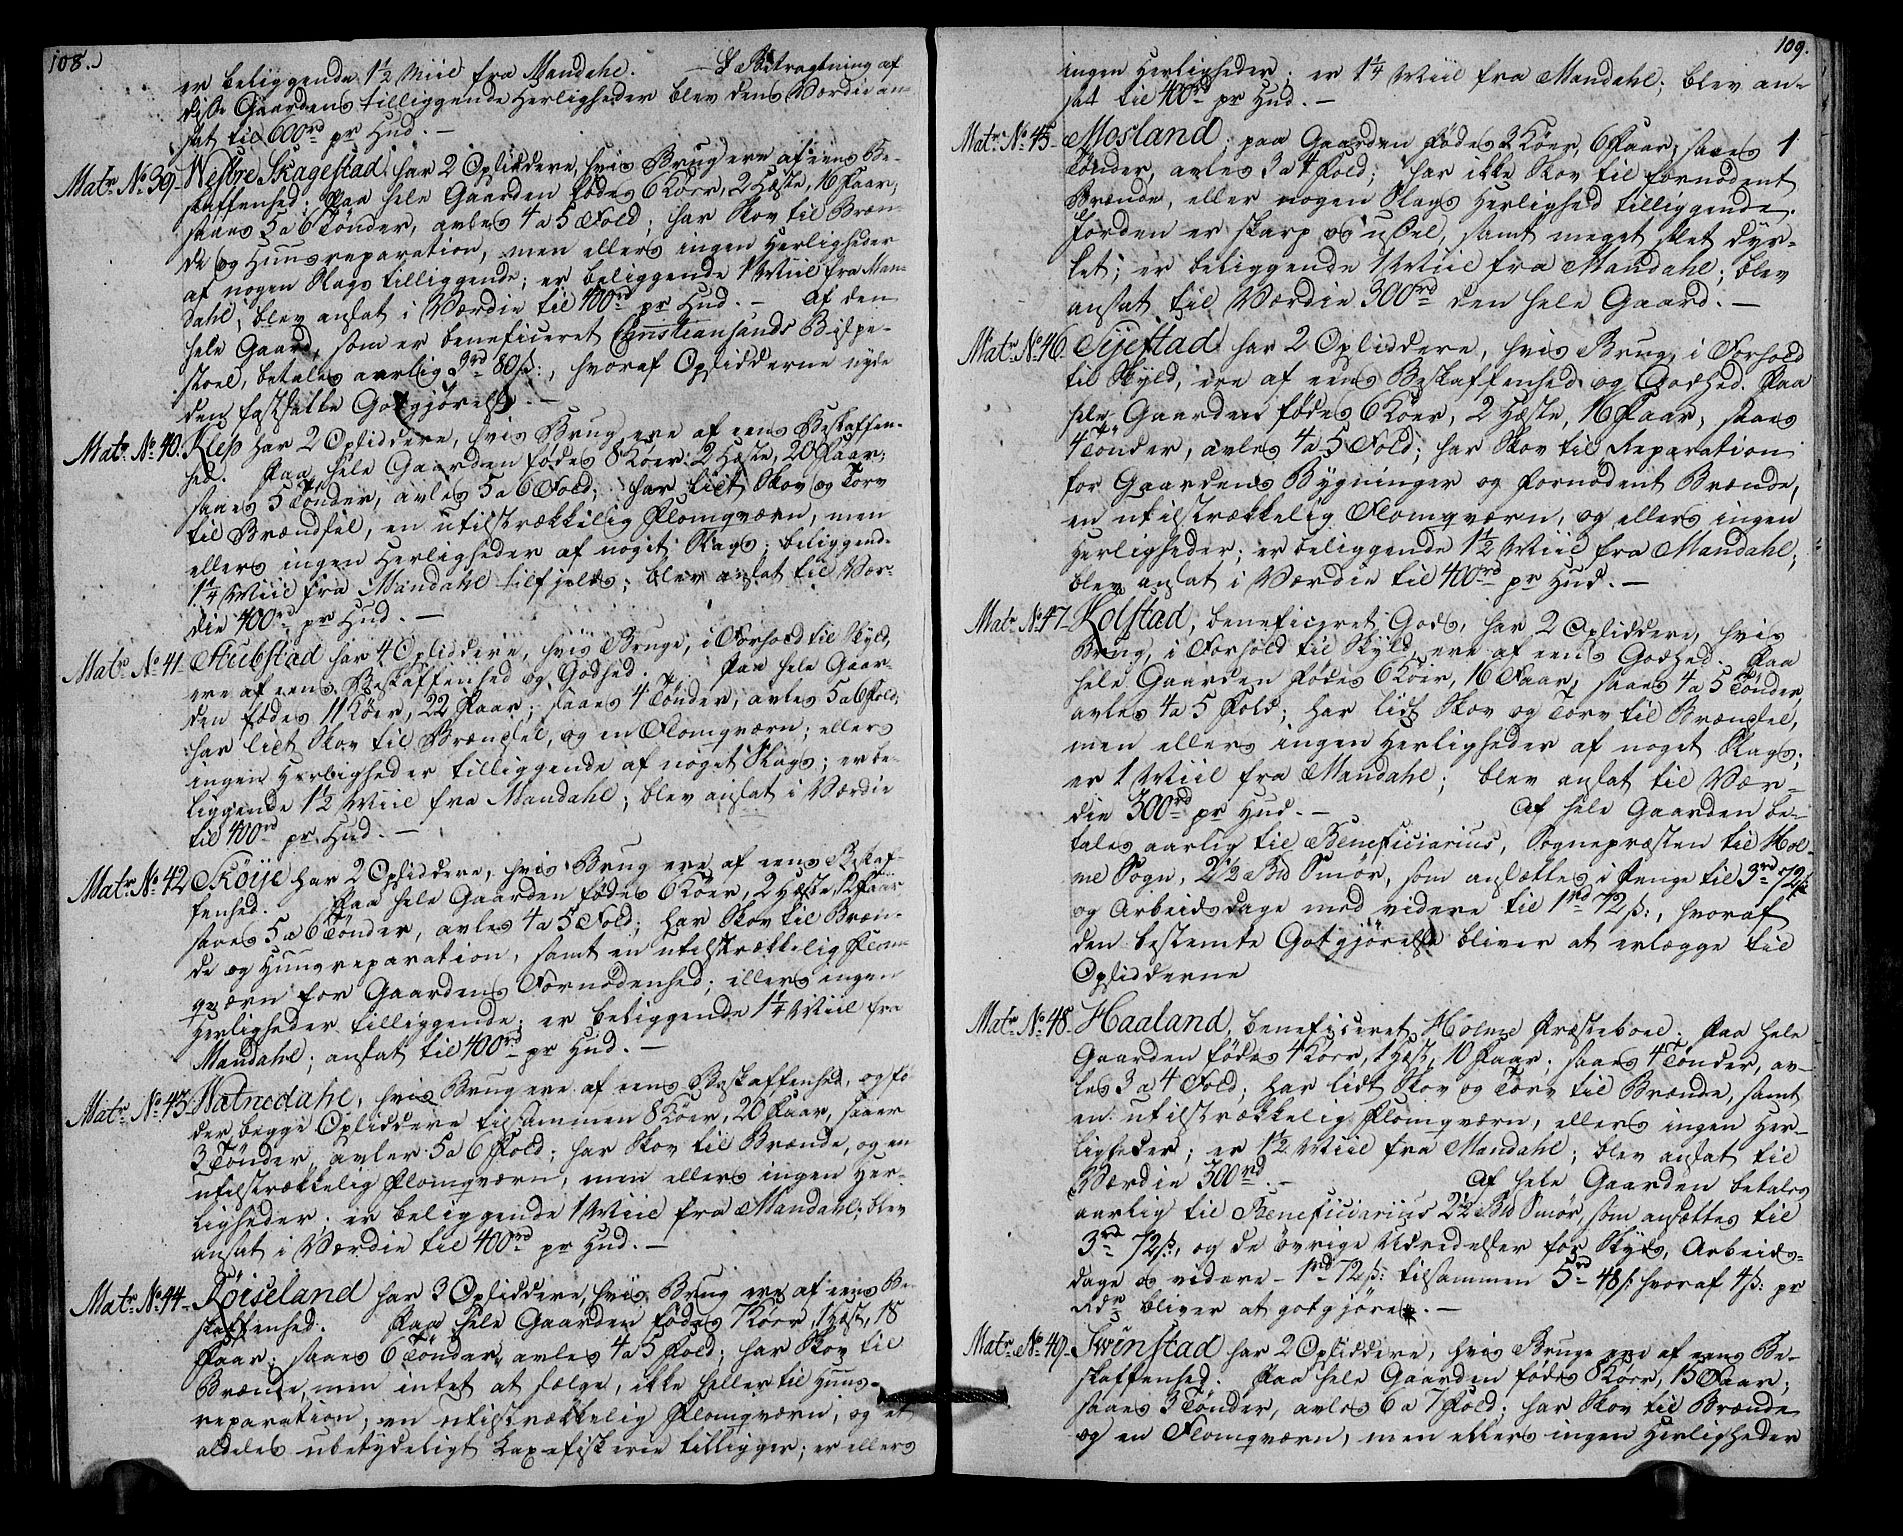 108.
er beliggende 1½ Miil fra Mandahl. — I Betragtning af
disse Gaardens tilliggende Herligheder blev dens Værdie an-
sat til 600rd pr Hud. —
Matr. No 39. Westre Skagestad har 2 Opliddere, hvis Brug ere af eens Be-
skaffenhed; Paa hele Gaarden födes 6 Köer, 2 Hæste, 16 Faar,
saaes 5 a 6 Tönder, avles 4 a 5 Fold; har Skov til Bræn-
de og Huusreparation, men ellers ingen Herligheder
af nogen Slags tilliggende; er beliggende 1 Miil fra Man-
dahl; blev ansat i Værdie til 400rd pr Hud. — Af den
hele Gaard, som er beneficeret Christiansands Bispe-
stoel, betales aarlig 3rd 80ß:, hvoraf Opsidderne nyde
den fastsatte Godtgjörelse. —
Matr. No 40. Klep har 2 Opliddere, hvis Brug ere af eens Beskaffen-
hed. Paa hele Gaarden födes 8 Köer, 2 Hæste, 20 Faar;
saaes 5 Tönder, avles 5 a 6 Fold; har lidt Skov og Torv
til Brændsel, en utilstrækkelig Flomqværn, men
ellers ingen Herligheder af noget Slags; beliggende
1¼ Miil fra Mandahl tilfjelds; blev ansat til Vær-
die 400rd pr Hud. —
Matr. No 41. Stubstad har 4 Opliddere, hvis Bruge, i Forhold til Skyld,
ere af eens Beskaffenhed og Godhed. Paa hele Gaar-
den födes 11 Köer, 22 Faar; saaes 4 Tönder, avles 5 a 6 Fold;
har lidt Skov til Brændsel, og en Flomqværn; ellers
ingen Herligheder tilliggende af noget Slags; er be-
liggende 1½ Miil fra Mandahl; blev ansat i Værdie
til 400rd pr Hud. —
Matr. No 42. Sköije har 2 Opliddere, hvis Brug ere af eens Beskaf-
fenhed. Paa hele Gaarden födes 6 Köer, 2 Hæste, 12 Faar
saaes 5 a 6 Tönder, avles 4 a 5 Fold; har Skov til Bræn-
de og Huusreparation, samt en utilstrækkelig Flom-
qværn for Gaardens Fornödenhed; ellers ingen
Herligheder tilliggende; er beliggende 1¼ Miil fra
Mandahl; ansat til 400rd pr Hud. —
Matr. No 43. Watnedahl, hvis Brug ere af eens Beskaffenhed, og fö-
der begge Opliddere tilsammen 8 Köer, 20 Faar, saaer
3 Tönder, avler 5 a 6 Fold; har Skov til Brænde, og en
utilstrækkelig Flomqværn, men ellers ingen Her-
ligheder; er beliggende 1 Miil fra Mandahl; blev
ansat i Værdie til 400rd pr Hud. —
Matr. No 44. Röiseland har 3 Opliddere, hvis Brug ere af eens Be-
skaffenhed. Paa hele Gaarden födes 7 Köer, 1 Hæst, 18
Faar; saaes 6 Tönder, avles 4 a 5 Fold; har Skov til
Brænde, men intet at sælge, ikke heller til Huus-
reparation; en utilstrækkelig Flomqværn, og et
aldeles ubetydeligt Laxefiskerie tilligger; er ellers
109.
ingen Herligheder; er 1¼ Miil fra Mandahl; blev an-
sat til 400rd pr Hud. —
Matr. No 45. Mosland; paa Gaarden födes 3 Köer, 6 Faar; saaes 1
Tönder, avles 3 a 4 Fold; har ikke Skov til fornödent
Brænde, eller nogen Slags Herlighed tilliggende.
Jorden er skarp og ussel, samt meget slet dyr-
ket; er beliggende 1 Miil fra Mandahl; blev
ansat til Værdie 300rd den hele Gaard. —
Matr. No 46. Tijestad har 2 Opliddere, hvis Brug, i Forhold
til Skyld, ere af eens Beskaffenhed og Godhed. Paa
hele Gaarden födes 6 Köer, 2 Hæste, 16 Faar, saaes
4 Tönder, avles 4 a 5 Fold; har Skov til Reparation
for Gaardens Bygninger og fornödent Brænde,
en utilstrækkelig Flomqværn, og ellers ingen
Herligheder; er beliggende 1½ Miil fra Mandahl;
blev ansat i Værdie til 400rd pr Hud. —
Matr. No 47. Kolstad, beneficeret Gods, har 2 Opliddere, hvis
Brug, i Forhold til Skyld, ere af eens Godhed. Paa
hele Gaarden födes 6 Köer, 16 Faar, saaes 4 a 5 Tönder,
avles 4 a 5 Fold; har lidt Skov og Torv til Brændsel,
men ellers ingen Herligheder af noget Slags;
er 1 Miil fra Mandahl; blev ansat til Vær-
die 300rd pr Hud. — Af hele Gaarden be-
tales aarlig til Beneficiarius, Sognepræsten til Hol-
me Sogn, 2½ Bd Smör, som ansættes i Penge til 3rd 72ß
og Arbeidsdage med videre til 1rd 72ß:, hvoraf
den bestemte Godtgjörelse bliver at erlægge til
Opsidderne
Matr. No 48. Haaland, beneficeret Holme Præsteboel. Paa hele
Gaarden födes 4 Köer, 1 Hæst, 10 Faar; saaes 4 Tönder, av-
les 3 a 4 Fold; har lidt Skov og Torv til Brænde, samt
en utilstrækkelig Flomqværn, ellers ingen Her-
ligheder; er 1½ Miil fra Mandahl; blev ansat til
Værdie 300rd. — Af hele Gaarden betales
aarlig til Beneficiarius 2½ Bd Smör, som ansættes til
3rd 72ß, og de övrige Udredelser for Skyds, Arbeids-
dage og videre – 1rd 72ß: tilsammen 5rd 48ß: hvoraf 4ß: pr
Rdr bliver at godtgjöres. —
Matr. No 49. Swinstad har 2 Opliddere, hvis Bruge ere af eens Be-
skaffenhed. Paa hele Gaarden födes 8 Köer, 15 Faar;
saaes 3 Tönder, avles 6 a 7 Fold; har Skov til Brænde
og en Flomqværn, men ellers ingen Herligheder